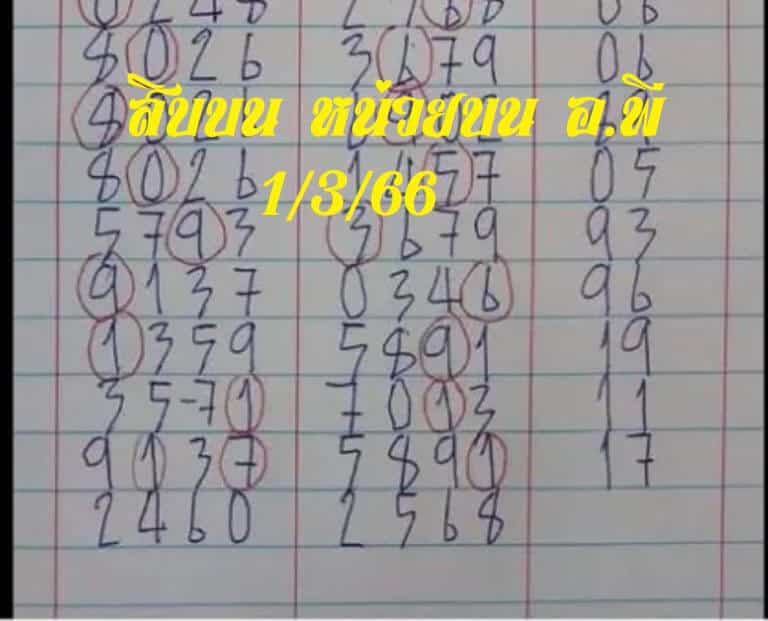 8026 3679 06
สิบบน หน่วยบน อ.พี
8026 1457 05
1/3/66
5793 3679 93
9137 0346 96
1359 5891 19
35-71 7013 11
9137 5891 17
2460 2568